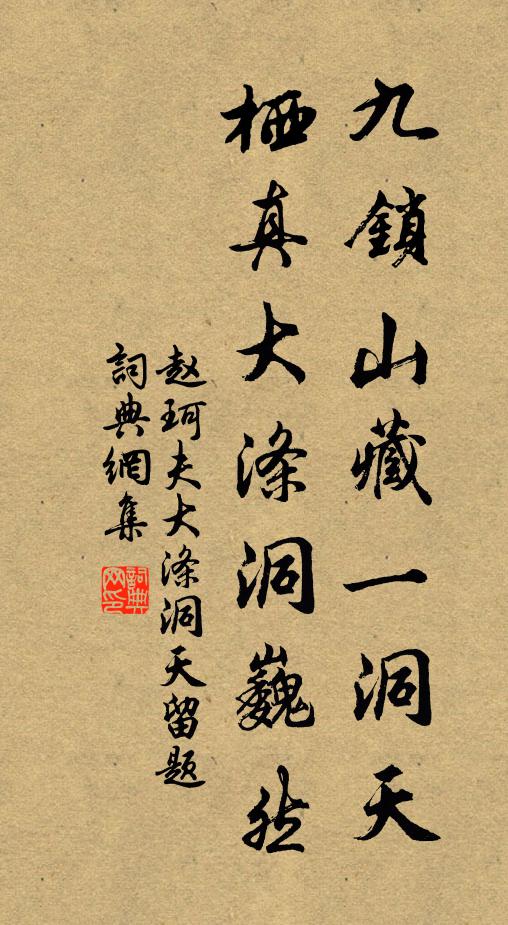 九鎖山藏一洞天
栖真大滌洞巍然
赵珂夫大滌洞天留题
詞典網集
詞典網印